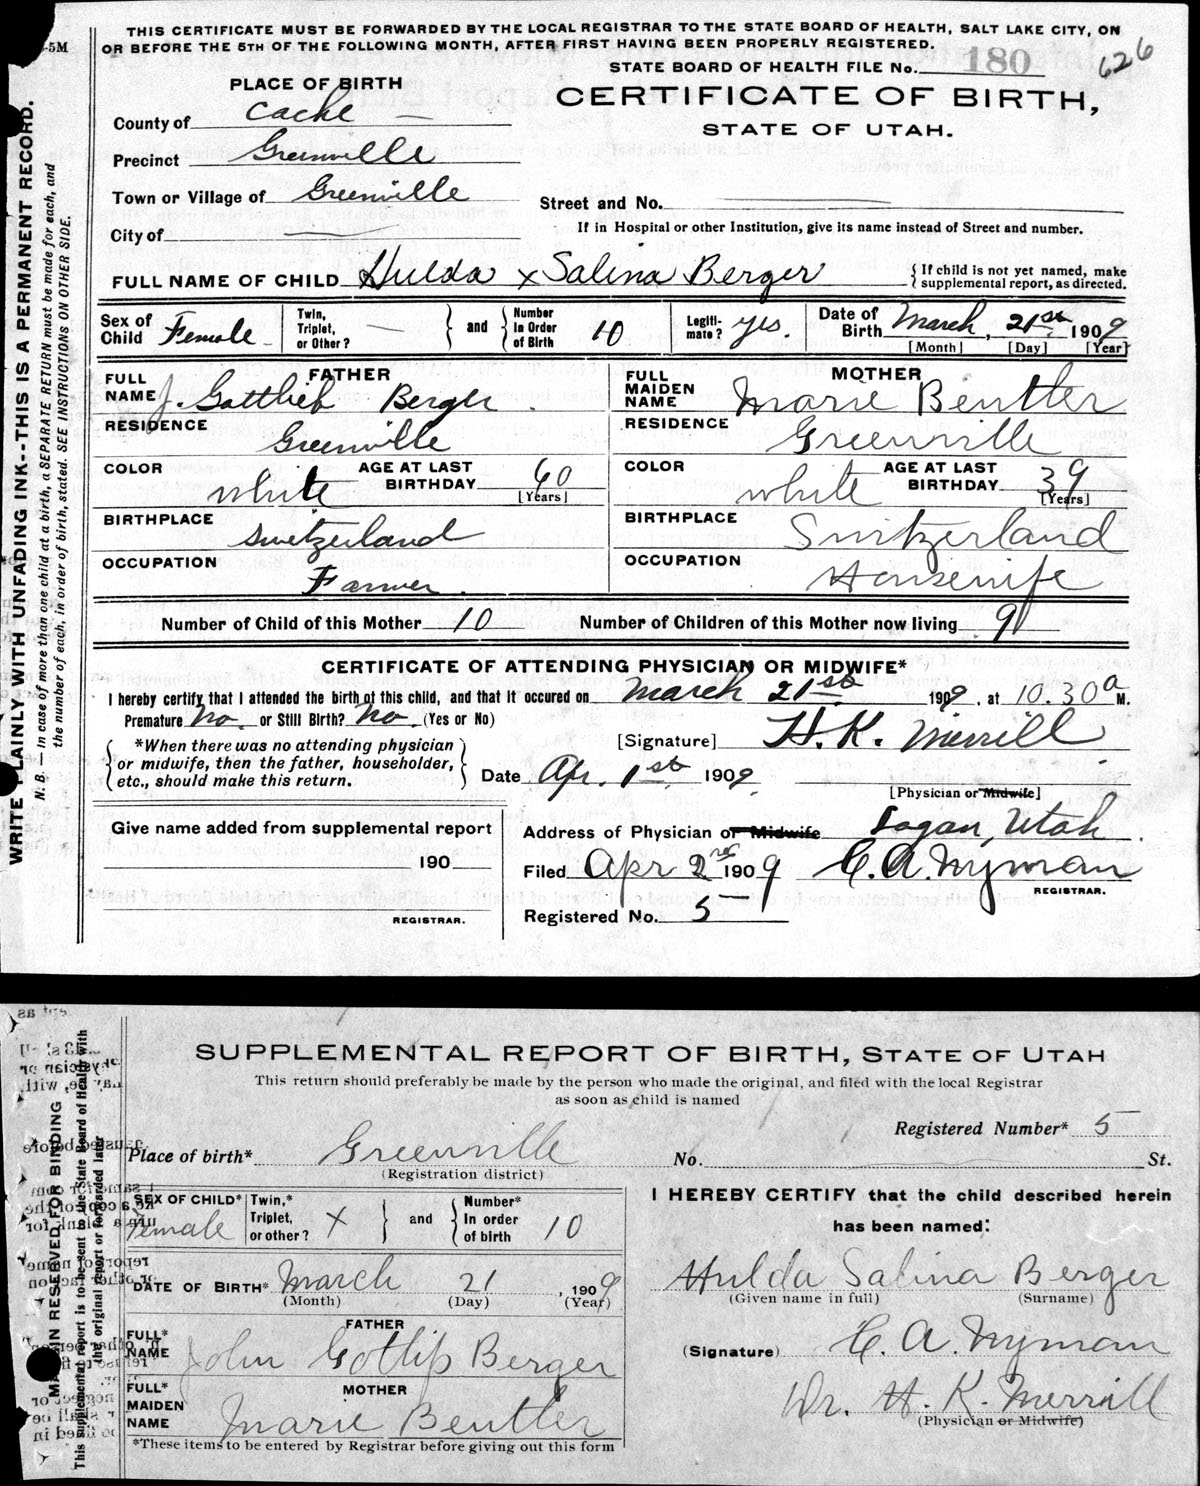 THIS CERTIFICATE MUST BE FORWARDED BY THE LOCAL REGISTRAR TO THE STATE BOARD OF HEALTH, SALT LAKE CITY, ON
OR BEFORE THE 5TH OF THE FOLLOWING MONTH, AFTER FIRST HAVING BEEN PROPERLY REGISTERED.
-5M
STATE BOARD OF HEALTH FILE No. 180 626
PLACE OF BIRTH
CERTIFICATE OF BIRTH,
STATE OF UTAH.
County of Cache
Precinct Greenville
Town or Village of Greenville
Street and No.
City of
If in Hospital or other Institution, give its name instead of Street and number.
FULL NAME OF CHILD Hulda x Salina Berger { If child is not yet named, make supplemental report, as directed.
Sex of Child Female Twin, Triplet, or Other? } and { Number In Order of Birth 10 Legiti-mate? yes. Date of Birth March, 21st 1909
[Month] [Day] [Year]
FATHER
FULL NAME J. Gottlieb Berger
RESIDENCE Greenville
COLOR white AGE AT LAST BIRTHDAY 60 [Years]
BIRTHPLACE Switzerland
OCCUPATION Farmer.
MOTHER
FULL MAIDEN NAME Marie Beutler
RESIDENCE Greenville
COLOR white AGE AT LAST BIRTHDAY 39 [Years]
BIRTHPLACE Switzerland
OCCUPATION Housewife
Number of Child of this Mother 10 Number of Children of this Mother now living 9
CERTIFICATE OF ATTENDING PHYSICIAN OR MIDWIFE*
I hereby certify that I attended the birth of this child, and that it occured on March 21st 1909, at 10.30 a M.
Premature No or Still Birth? No (Yes or No)
{ *When there was no attending physician or midwife, then the father, householder, etc., should make this return. }
[Signature] H. K. Merrill
Date Apr. 1st 1909
[Physician or Midwife]
Give name added from supplemental report
190
REGISTRAR.
Address of Physician or Midwife Logan, Utah.
Filed Apr 2nd 1909 C. A. Nyman
REGISTRAR.
Registered No. 5
WRITE PLAINLY WITH UNFADING INK--THIS IS A PERMANENT RECORD.
N. B. — In case of more than one child at a birth, a SEPARATE RETURN must be made for each, and
the number of each, in order of birth, stated. SEE INSTRUCTIONS ON OTHER SIDE.
SUPPLEMENTAL REPORT OF BIRTH, STATE OF UTAH
This return should preferably be made by the person who made the original, and filed with the local Registrar
as soon as child is named
Registered Number* 5
Place of birth* Greenville No. St.
(Registration district)
SEX OF CHILD* Female Twin,* Triplet, or other? X } and { Number* In order of birth 10
DATE OF BIRTH* March 21, 1909
(Month) (Day) (Year)
FATHER
FULL* NAME John Gotlip Berger
MOTHER
FULL* MAIDEN NAME Marie Beutler
*These items to be entered by Registrar before giving out this form
I HEREBY CERTIFY that the child described herein
has been named:
Hulda Salina Berger
(Given name in full) (Surname)
(Signature) C. A. Nyman
Dr. H. K. Merrill
(Physician or Midwife)
MARGIN RESERVED FOR BINDING
This supplemental report is to be sent to the State Board of Health with
the original report or forwarded later